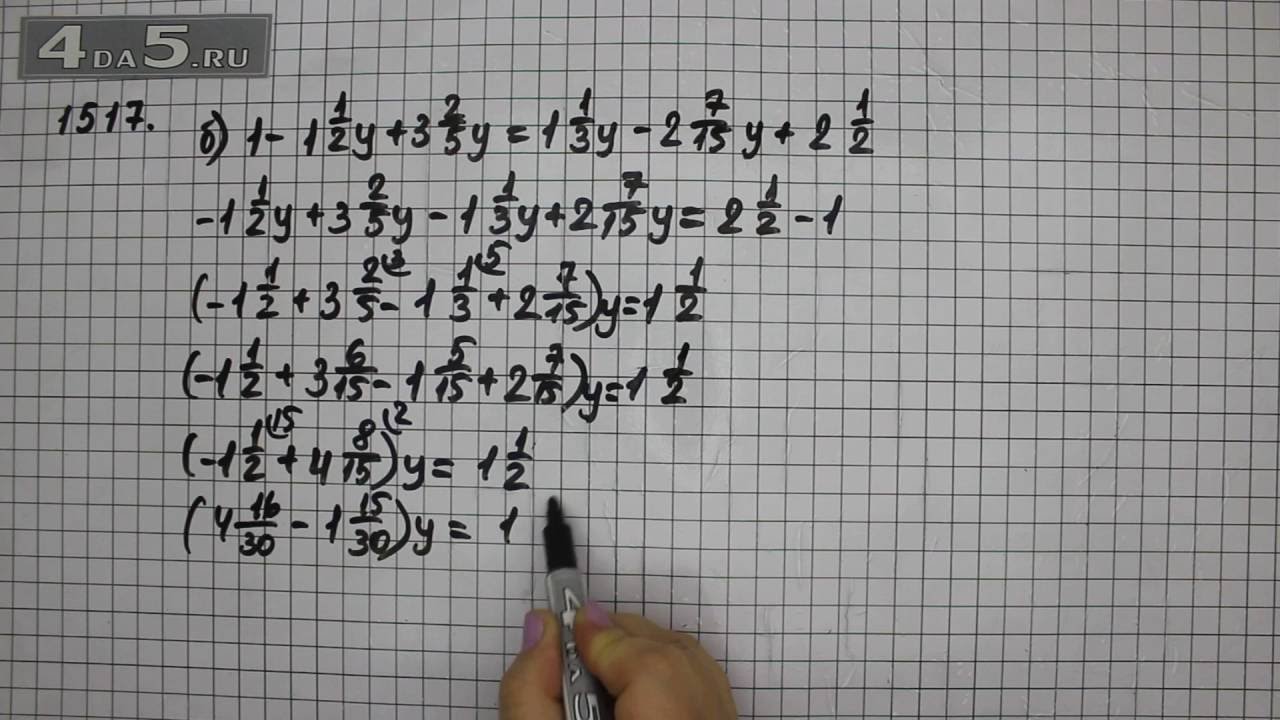 4DA5.RU
1517. б) 1 - 1 1/2 y + 3 2/5 y = 1 1/3 y - 2 7/15 y + 2 1/2
-1 1/2 y + 3 2/5 y - 1 1/3 y + 2 7/15 y = 2 1/2 - 1
(-1 1/2 + 3 2/5 (3 - 1 1/3 (5 + 2 7/15) y = 1 1/2
(-1 1/2 + 3 6/15 - 1 5/15 + 2 7/15) y = 1 1/2
(-1 1/2 (15 + 4 8/15 (2 ) y = 1 1/2
(4 16/30 - 1 15/30) y = 1
4ДА 5